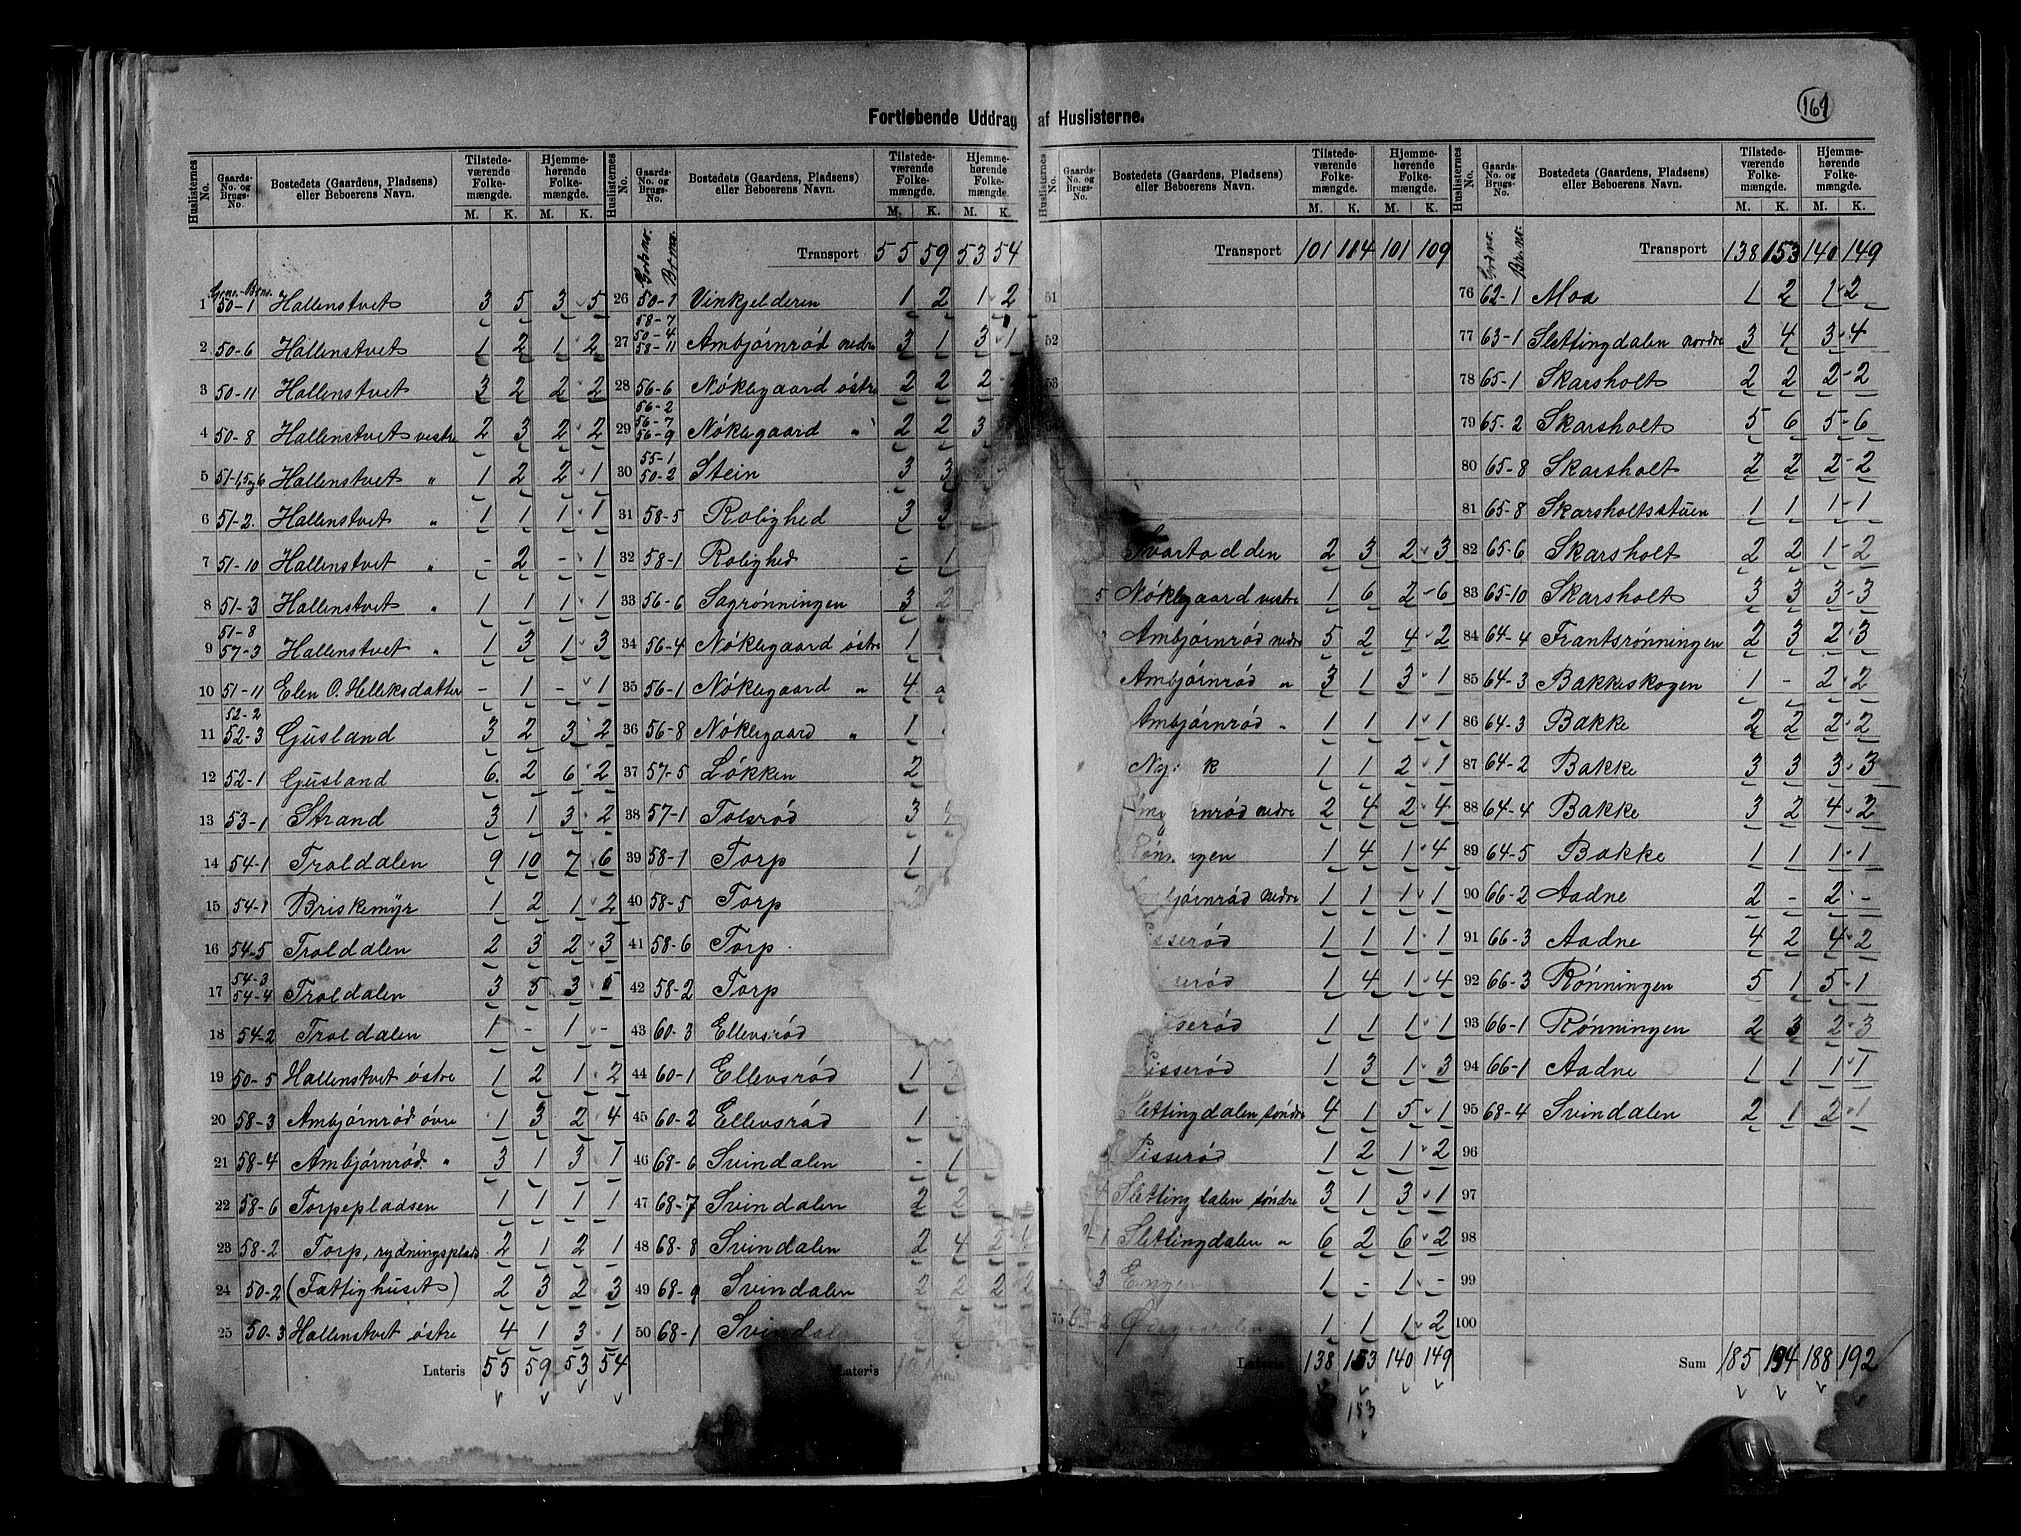 161
Fortløbende Uddrag af Huslisterne.
Huslisternes No. | Gaards-No. og Brugs-No. | Bostedets (Gaardens, Pladsens) eller Beboerens Navn. | Tilstede-værende Folke-mængde. M. K. | Hjemme-hørende Folke-mængde. M. K.
Gno. Bno.
1 50-1 Hallenstvet 3 5 3 5
2 50-6 Hallenstvet 1 2 1 2
3 50-11 Hallenstvet 3 2 2 2
4 50-8 Hallenstvet vestre 2 3 2 2
5 51-1,5,6 Hallenstvet " 1 2 2 1
6 51-2. Hallenstvet " 1 1 1 1
7 51-10 Hallenstvet " - 2 - 1
8 51-3 Hallenstvet " 1 1 1 1
9 51-8 57-3 Hallenstvet " 1 3 1 3
10 51-11 Elen O. Helleksdatter - 1 - 1
11 52-2 52-3 Gusland 3 2 3 2
12 52-1 Gusland 6. 2 6 2
13 53-1 Strand 3 1 3 2
14 54-1 Troldalen 9 10 7 6
15 54-1 Briskemyr 1 2 1 2
16 54-5 Troldalen 2 3 2 3
17 54-3 54-4 Troldalen 3 5 3 5
18 54-2 Troldalen 1 - 1 -
19 50-5 Hallenstvet østre 1 2 1 2
20 58-3 Ambjørnrød øvre 1 3 2 4
21 58-4 Ambjørnrød. " 3 1 3 1
22 58-6 Torpepladsen 1 1 1 1
23 58-2 Torp, rydningsplads 2 1 2 1
24 50-2 (Fattighuset) 2 3 2 3
25 50-3 Hallenstvet østre 4 1 3 1
Lateris 55 59 53 54
Huslisternes No. | Gaards-No. og Brugs-No. | Bostedets (Gaardens, Pladsens) eller Beboerens Navn. | Tilstede-værende Folke-mængde. M. K. | Hjemme-hørende Folke-mængde. M. K.
Transport 55 59 53 54
26 50-1 Vinkjelderen 1 2 1 2
27 58-7 50-4 58-11 Ambjørnrød nedre 3 1 3 1
28 56-6 Nøklegaard østre 2 2 2
29 56-2 56-7 56-9 Nøklegaard " 2 2 3
30 55-1 50-2 Stein 3 3
31 58-5 Rolighed 3
32 58-1 Rolighed - 1
33 56-6 Sagrønningen 3 2
34 56-4 Nøklegaard østre 1
35 56-1 Nøklegaard " 4
36 56-8 Nøklegaard " 1
37 57-5 Løkken 2
38 57-1 Tolsrød 3
39 58-1 Torp 1
40 58-5 Torp 2
41 58-6 Torp.
42 58-2 Torp
43 60-3 Ellevsrød
44 60-1 Ellevsrød 1 -
45 60-2 Ellevsrød 1
46 68-6 Svindalen - 1
47 68-7 Svindalen 2 2
48 68-8 Svindalen 2 4 2 4
49 68-9 Svindalen 2 2 2 2
50 68-1 Svindalen
Lateris 101
Huslisternes No. | Gaards-No. og Brugs-No. | Bostedets (Gaardens, Pladsens) eller Beboerens Navn. | Tilstede-værende Folke-mængde. M. K. | Hjemme-hørende Folke-mængde. M. K.
Transport 101 104 101 109
51
52
53
Svartodden 2 3 2 3
5 Nøklegaard vestre 1 6 2 6
Ambjørnrød nedre 5 2 4 2
Ambjørnrød " 3 1 3 1
Ambjørnrød " 1 1 1 1
k 1 1 2 1
nrød nedre 2 4 2 4
Røn gen 1 4 1 4
bjørnrød nedre 1 1 1 1
isserød 1 1 1 1
erød 1 4 1 4
serød 1 1 1 1
Pisserød 1 3 1 3
Slettingdalen søndre 4 1 5 1
Pisserød 1 2 1 2
4 Sletting dalen søndre 3 1 3 1
1 Slettingdalen " 6 2 6 2
3 Engen 1 - 1 -
75 1 1 1 2
Lateris 138 153 140 149
153
Huslisternes No. | Gaards-No. og Brugs-No. | Bostedets (Gaardens, Pladsens) eller Beboerens Navn. | Tilstede-værende Folke-mængde. M. K. | Hjemme-hørende Folke-mængde. M. K.
Transport 138 153 140 149
76 62-1 Moa 1 2 1 2
77 63-1 Slettingdalen nordre 3 4 3 4
78 65-1 Skarsholt 2 2 2 2
79 65-2 Skarsholt 5 6 5 6
80 65-8 Skarsholt 2 2 2 2
81 65-8 Skarsholtsstuen 1 1 1 1
82 65-6 Skarsholt 2 2 1 2
83 65-10 Skarsholt 3 3 3 3
84 64-4 Frantsrønningen 2 3 2 3
85 64-3 Bakkeskogen 1 - 2 2
86 64-3 Bakke 2 2 2 2
87 64-2 Bakke 3 3 3 3
88 64-4 Bakke 3 2 4 2
89 64-5 Bakke 1 1 1 1
90 66-2 Aadne 2 - 2 -
91 66-3 Aadne 4 2 4 2
92 66-3 Rønningen 5 1 5 1
93 66-1 Rønningen 2 3 2 3
94 66-1 Aadne 1 1 1 1
95 68-4 Svindalen 2 1 2 1
96
97
98
99
100
Sum 185 194 188 192